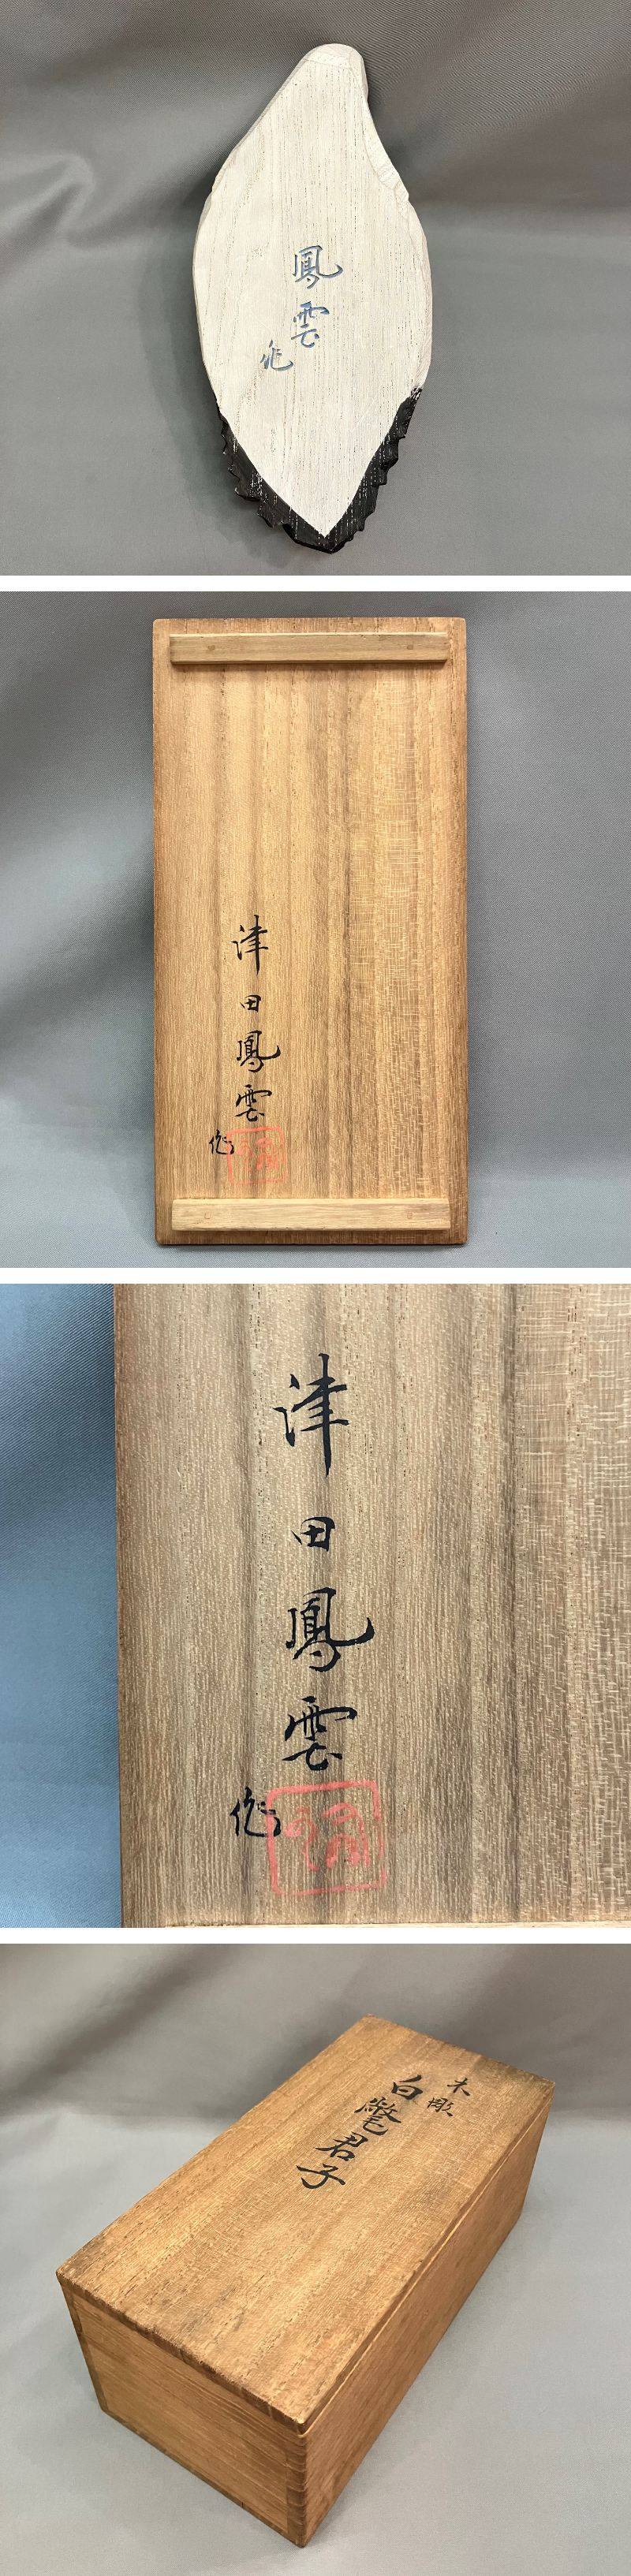 鳳雲
作
津田鳳雲
作
津田鳳雲
作
木彫
白鷩君子